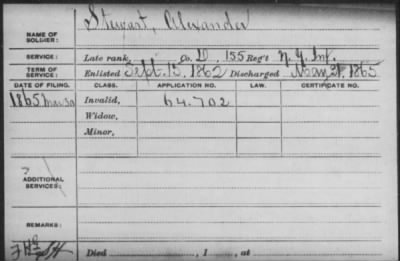 NAME OF SOLDIER: Stewart, Alexander
SERVICE: Late rank, Co. D, 155 Reg't N.Y. Inf.
TERM OF SERVICE: Enlisted Sept. 15, 1862 Discharged May 21, 1865
DATE OF FILING. CLASS. APPLICATION NO. LAW. CERTIFICATE NO.
1865 Invalid, 64.702
Widow,
Minor,
ADDITIONAL SERVICES:
REMARKS:
Died , 1 , at